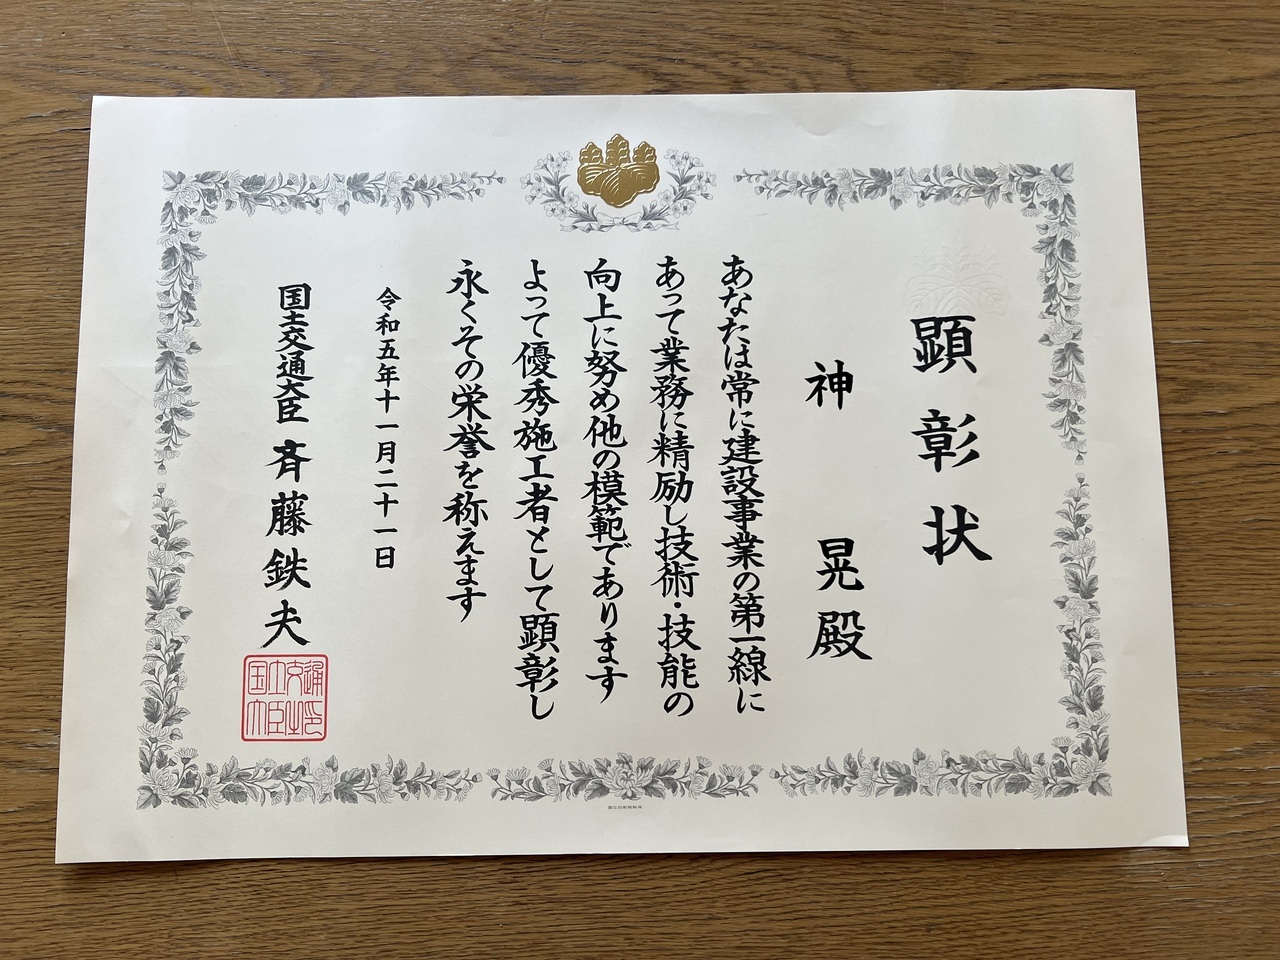 顕彰状
神 晃殿
あなたは常に建設事業の第一線に
あって業務に精励し技術・技能の
向上に努め他の模範であります
よって優秀施工者として顕彰し
永くその栄誉を称えます
令和五年十一月二十一日
国土交通大臣 斉藤鉄夫
国土交通大臣之印